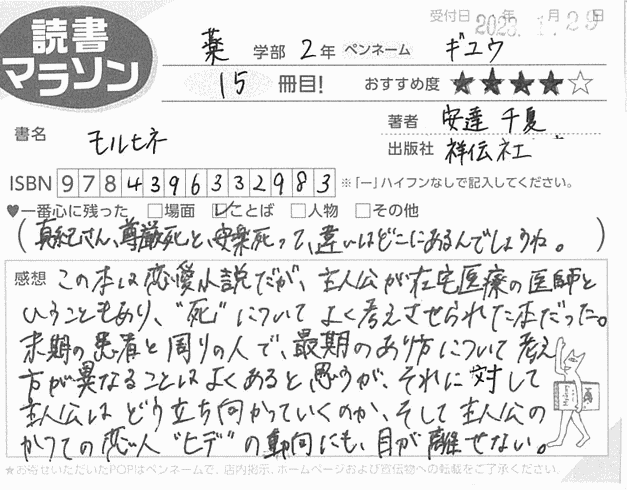 受付日 2023年 1月29日
読書マラソン
薬 学部 2年 ペンネーム ギユウ
15 冊目! おすすめ度 ★★★★☆
書名 モルヒネ
著者 安達 千夏
出版社 祥伝社
ISBN 9784396332983 ※「ー」ハイフンなしで記入してください。
♥一番心に残った □場面 ☑ことば □人物 □その他
(真紀さん、尊厳死と、安楽死って、違いはどこにあるんでしょうね。)
感想 この本は恋愛小説だが、主人公が在宅医療の医師と
いうこともあり、"死"について よく考えさせられた本だった。
末期の患者と周りの人で、最期のあり方について考え
方が異なることはよくあると思うが、それに対して
主人公はどう立ち向かっていくのか、そして主人公の
かつての恋人"ヒデ"の動向にも、目が離せない。
★お寄せいただいたPOPはペンネームで、店内掲示、ホームページおよび宣伝物への転載をご了承ください。